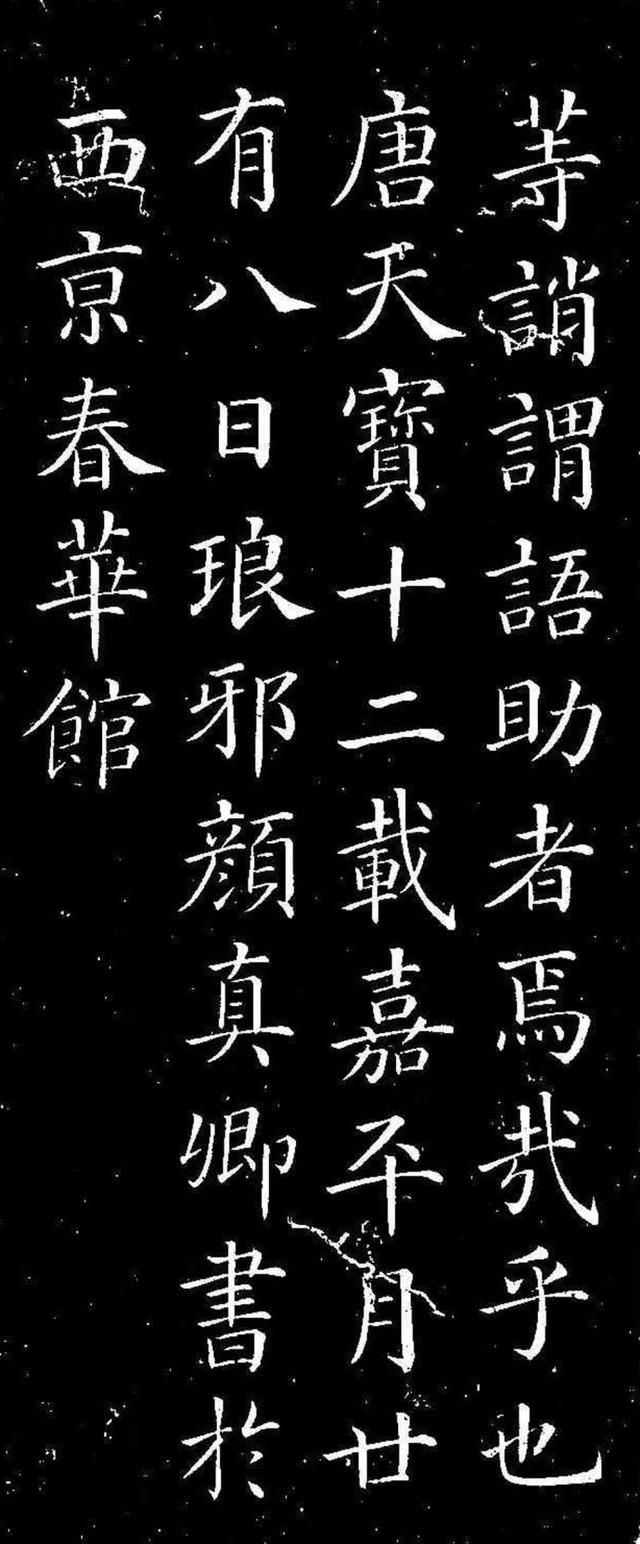 等誚謂語助者焉哉乎也
唐天寶十二載嘉平月廿
有八日琅邪顏真卿書於
西京春華館